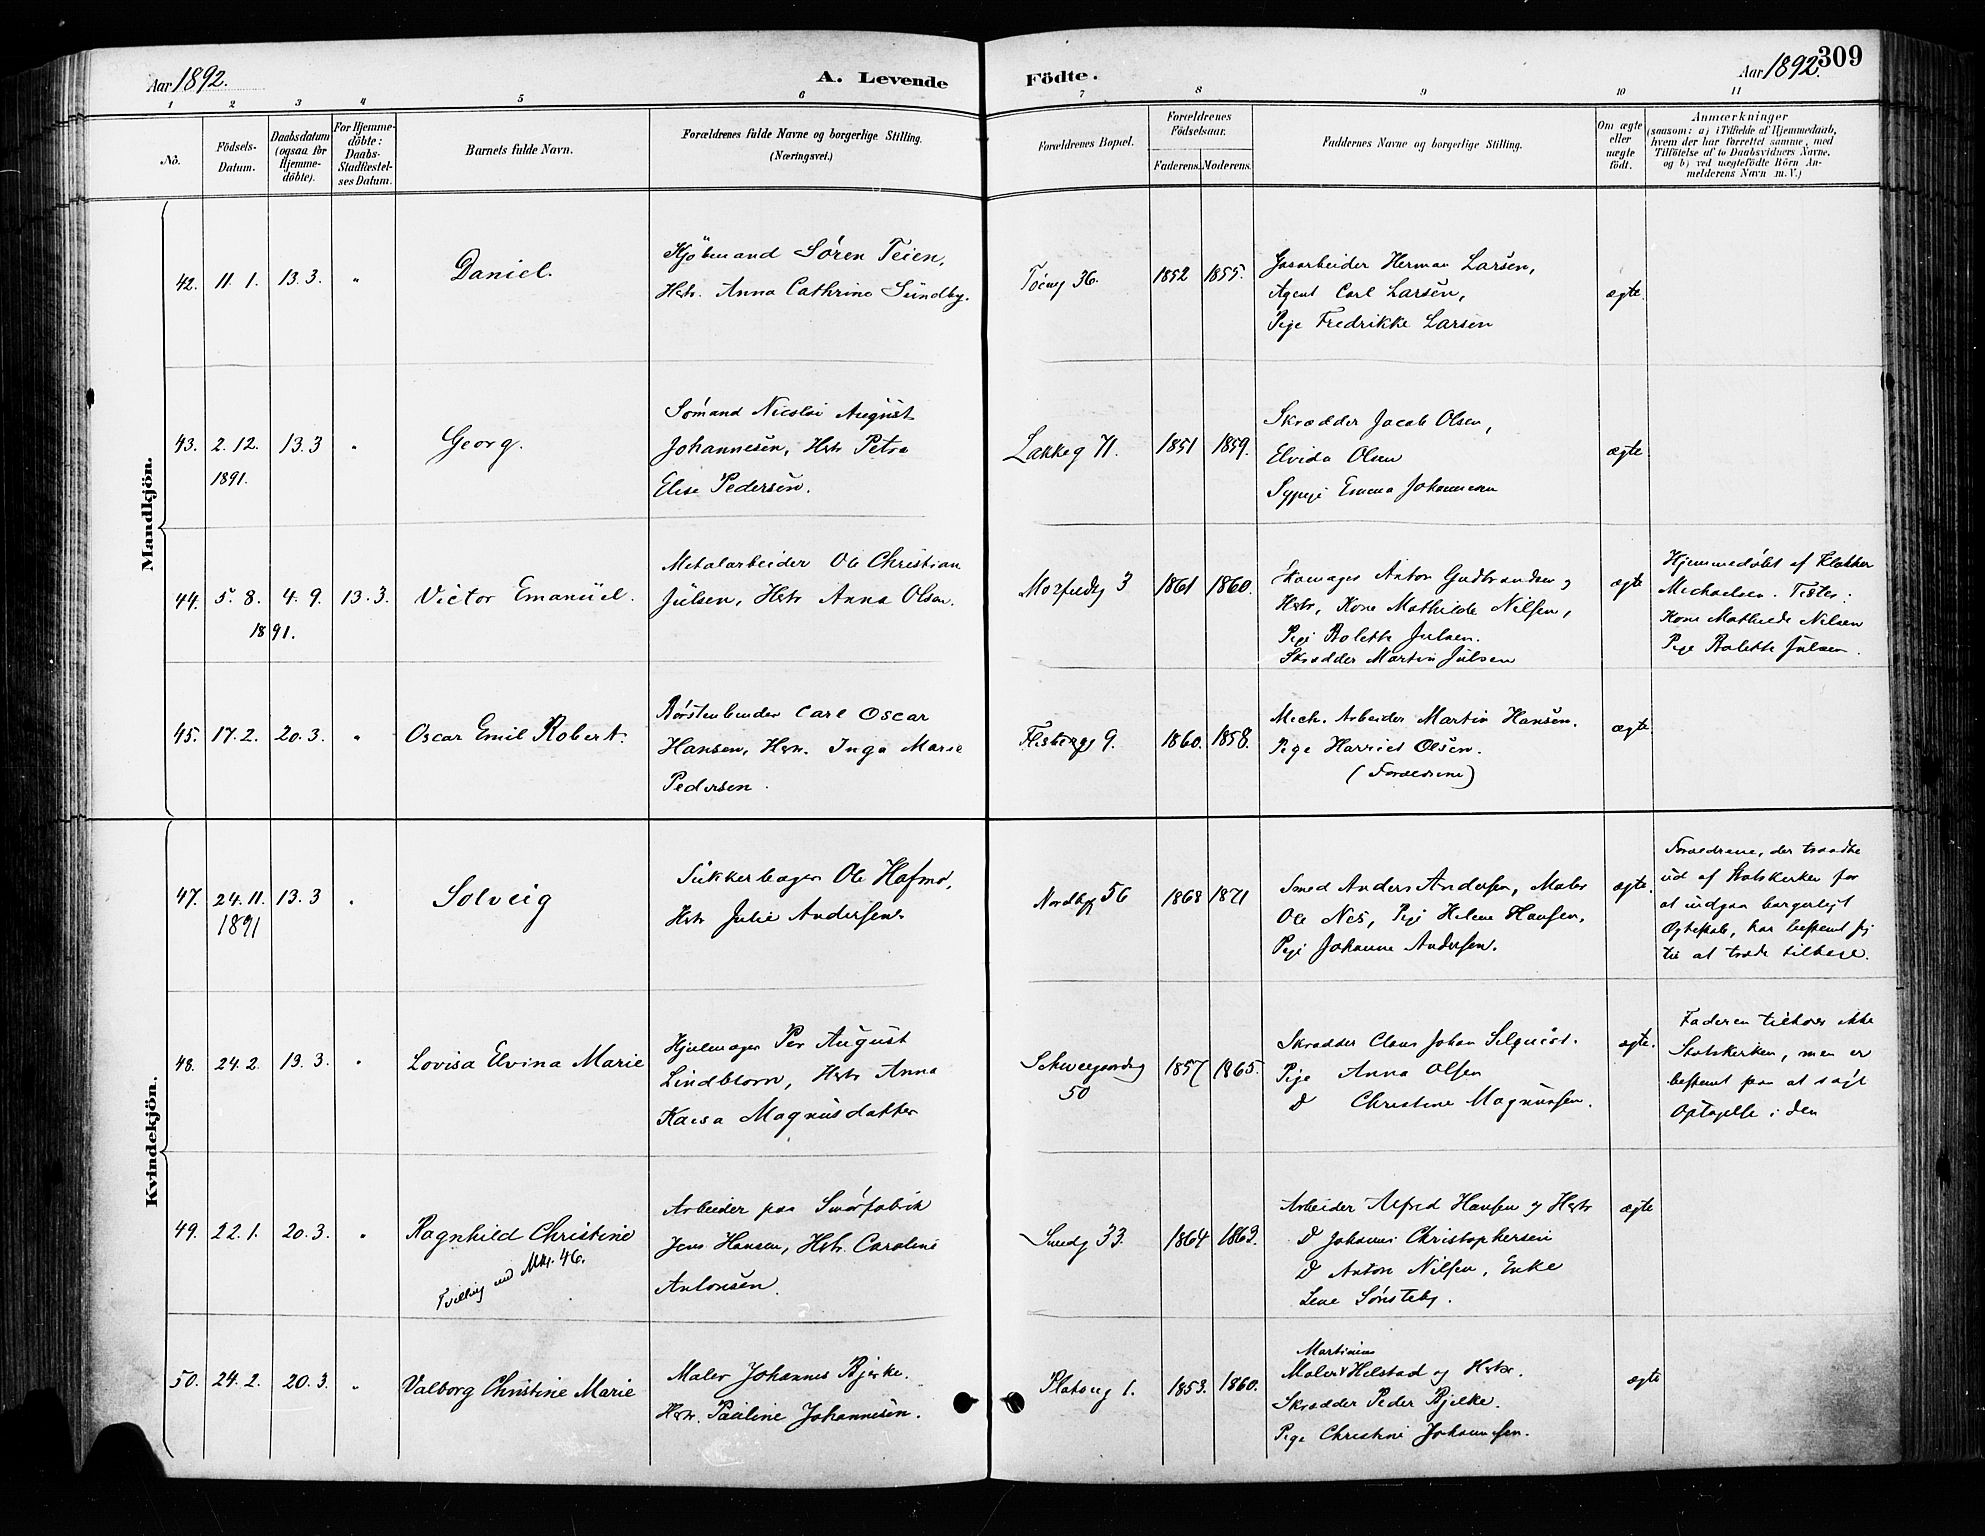 Aar 1892.
A. Levende Födte.
Aar 1892.
309
1 2 3 4 5 6 7 8 9 10 11
No.
Födsels-
Datum.
Daabsdatum
(ogsaa for
Hjemme-
döbte).
For Hjemme-
döbte:
Daabs-
Stadfæstel-
ses Datum.
Barnets fulde Navn.
Forældrenes fulde Navne og borgerlige Stilling.
(Næringsvei.)
Forældrenes Bopæl.
Forældrenes
Födselsaar.
Faderens. Moderens.
Faddernes Navne og borgerlige Stilling.
Om ægte
eller
uægte
født.
Anmærkninger
(saasom: a) i Tilfælde af Hjemmedaab,
hvem der har forrettet samme, med
Tilföielse af to Daabsvidners Navne,
og b) ved uægtefödte Börn An-
melderens Navn m. V.)
Mandkjön.
42. 11. 1. 13. 3. "
Daniel.
Kjöbmand Sören Teien,
Hstr. Anna Cathrine Sundby.
Töieng 36.
1852 1855.
Gasarbeider Herman Larsen,
Agent Carl Larsen,
Pige Fredrikke Larsen
ægte.
43. 2. 12. 13. 3 "
1891.
Georg.
Sömand Nicolai August
Johannesen, Hstr Petra
Elise Pedersen.
Lakkeg 71.
1851 1859.
Skrædder Jacob Olsen,
Elvida Olsen
Sypige Emma Johannesen
ægte
44. 5. 8. 4. 9. 13. 3.
1891.
Victor Emanuel.
Metalarbeider Ole Christian
Julsen, Hstr Anna Olsen.
1861 1860.
Skomager Anton Gudbrandsen og
Hstr, Kone Mathilde Nilsen,
Pige Bolette Julsen.
Skrædder Martin Julsen
ægte
Hjemmedöbt af Klokker
Michaelsen. Testes:
Kone Mathilde Nilsen
Pige Bolette Julsen.
45. 17. 2. 20. 3. "
Oscar Emil Robert.
Börstenbinder Carl Oscar
Hansen, Hstr. Inga Marie
Pedersen.
Flisbergg 9.
1860. 1858.
Mech. Arbeider Martin Hansen.
Pige Harriet Olsen.
(Forældrene)
ægte.
Kvindekjön.
47. 24. 11. 13. 3 "
1891
Solveig
Sukkerbager Ole Hafmo,
Hstr Julie Andersen
Nordbyg 56
1868 1871
Smed Anders Andersen, Maler
Ole Nes, Pige Helene Hansen,
Pige Johanne Andersen.
ægte.
Forældrene, der traadte
ud af Statskirken for
at indgaa borgerligt
Ægteskab, har bestemt sig
til at træde tilbage.
48. 24. 2. 13. 3. "
Lovisa Elvina Marie
Hjulmager Per August
Lindblom, Hstr Anna
Kaisa Magnusdatter
Schweigaardsg
50
1857 1865.
Skrædder Claus Johan Selquist.
Pige Anna Olsen
D Christine Magnusen.
ægte.
Faderen tilhører ikke
Statskirken, men er
bestemt paa at søge
Optagelse i den
49. 22. 1. 20. 3. "
Ragnhild Christine
Tvilling med Mkj. 46.
Arbeider paa Smörfabrik
Jens Hansen, Hstr. Caroline
Antonsen.
Smedg 33.
1864 1863.
Arbeider Alfred Hansen og Hstr
D Johannes Christophersen
D Anton Nilsen, Enke
Lene Sönsteby.
ægte
50. 24. 2. 20. 3. "
Valborg Christine Marie
Maler Johannes Bjerke.
Hstr. Pauline Johannesen.
Platoug 1.
1853. 1860.
Martinius
Maler Helstad og Hstr.
Skrædder Peder Bjelke.
Pige Christine Johannesen.
ægte